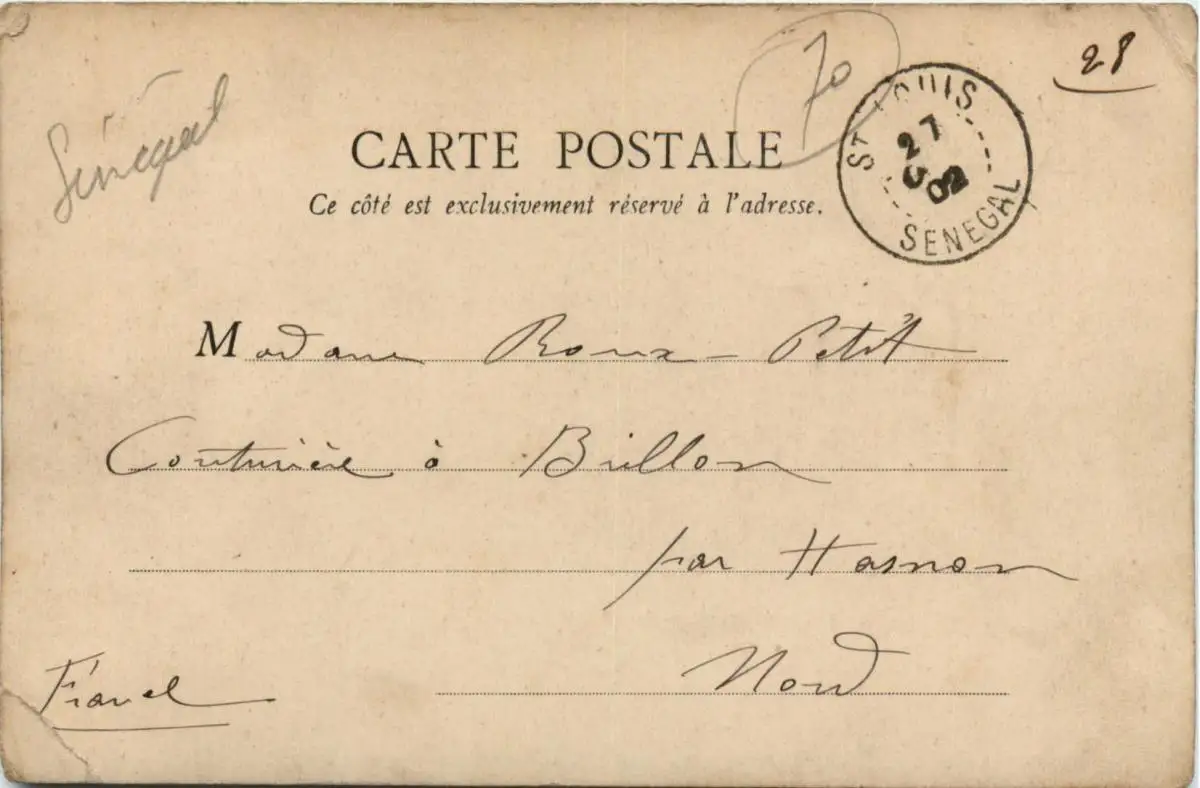 28
70
Sénégal
CARTE POSTALE
Ce côté est exclusivement réservé à l'adresse.
ST LOUIS
27
02
SENEGAL
Madame Roux-Petit
Couturière à Brillon
par Hasnon
Nord
France